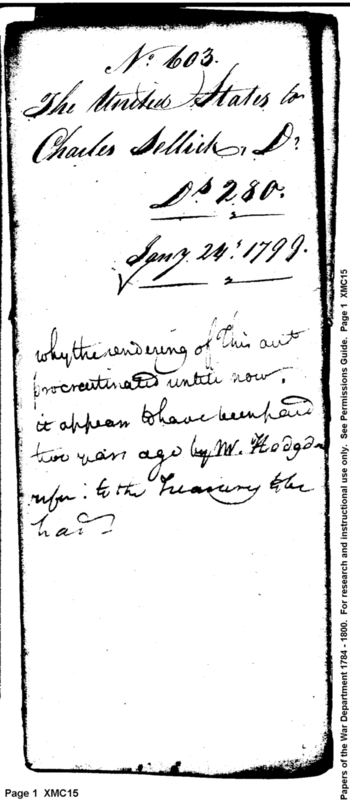 No. 603.
The United States to
Charles Sellick, Dr
Ds 280.
Jany. 24t. 1799.
why the rendering of this acct
procrastinated untill now.
it appears to have been paid
two years ago by Mr. Hodgdon
refer: to the Treasury to be
had
Page 1 XMC15
Papers of the War Department 1784 - 1800. For research and instructional use only. See Permissions Guide. Page 1 XMC15